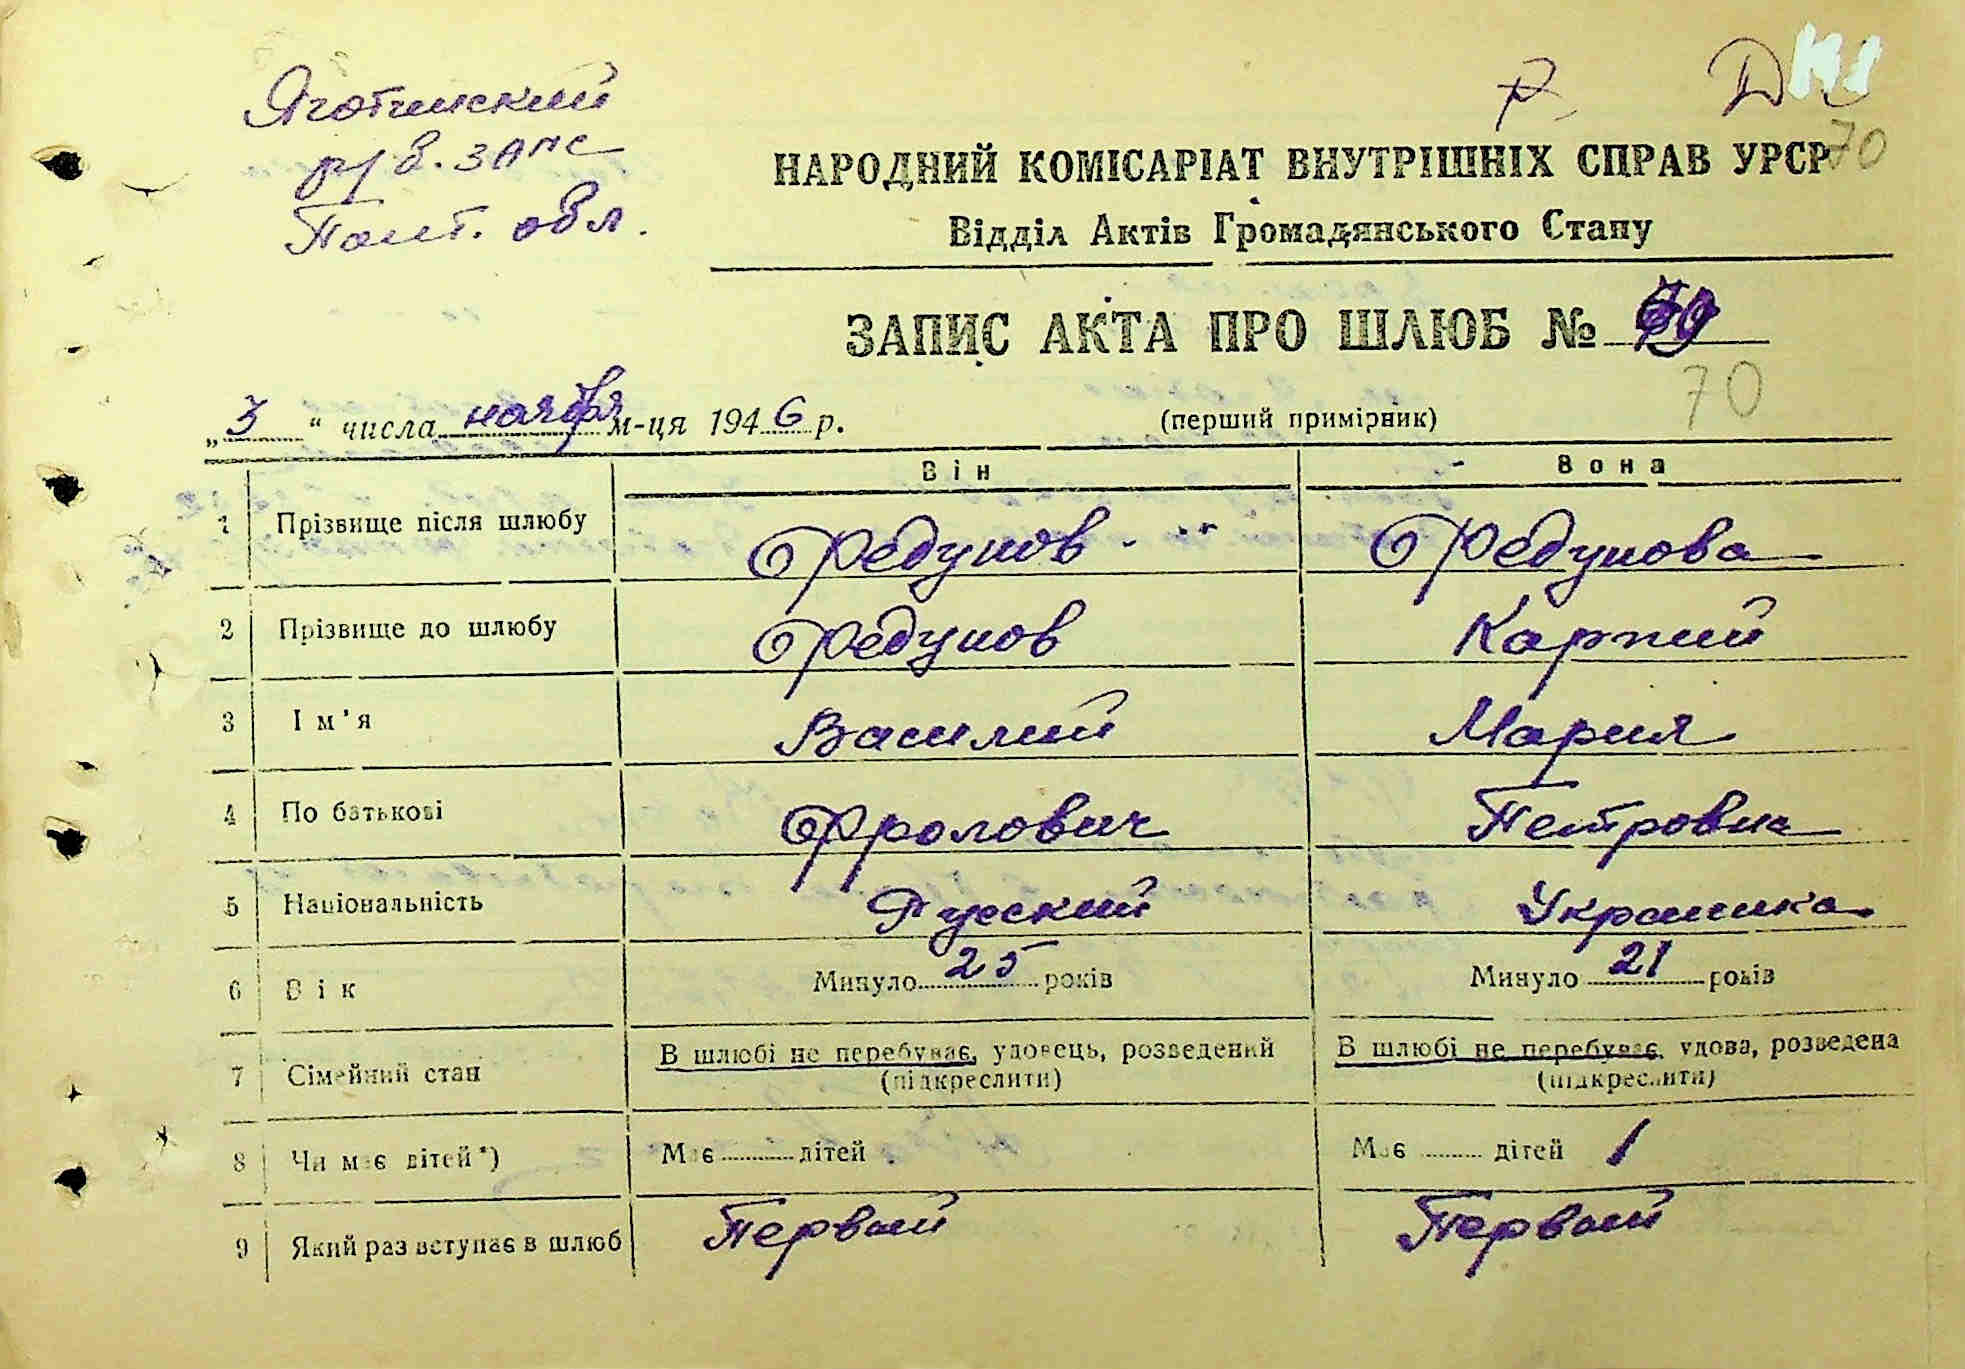 Яготинский
р/в. ЗАГС
Полт. обл.
70
НАРОДНИЙ КОМІСАРІАТ ВНУТРІШНІХ СПРАВ УРСР
Відділ Актів Громадянського Стану
ЗАПИС АКТА ПРО ШЛЮБ № 70
70
„ 3 “ числа ноября м-ця 1946 р. (перший примірник)
Він Вона
1 Прізвище після шлюбу Федунов Федунова
2 Прізвище до шлюбу Федунов Карпий
3 Ім'я Василий Мария
4 По батькові Фролович Петровна
5 Національність Русский Украинка
6 Вік Минуло 25 років Минуло 21 років
7 Сімейний стан В шлюбі не перебуває, удовець, розведений В шлюбі не перебуває, удова, розведена
(підкреслити) (підкреслити)
8 Чи має дітей*) Має дітей Має дітей 1
9 Який раз вступає в шлюб Первый Первый